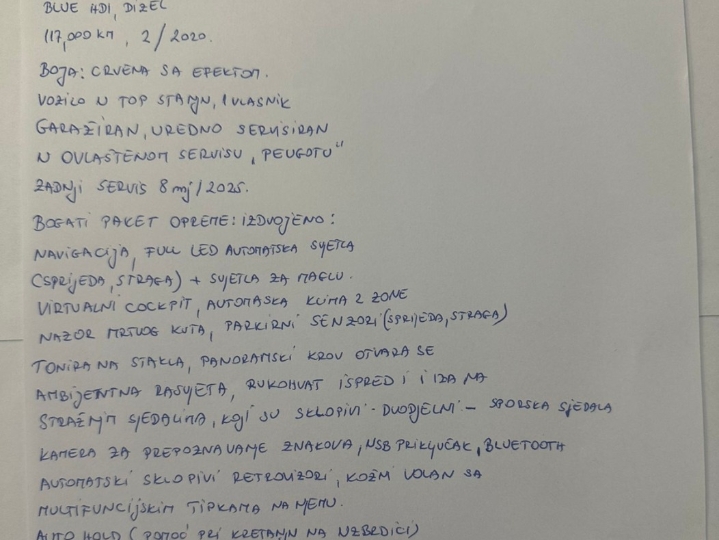 BLUE HDI, DIZEL
117,000 KM, 2/2020.
BOJA: CRVENA SA EFEKTOM.
VOZILO U TOP STANJU, 1 VLASNIK
GARAŽIRAN, UREDNO SERVISIRAN
U OVLAŠTENOM SERVISU, PEUGOTU"
ZADNJI SERVIS 8 mj/2025.
BOGATI PAKET OPREME: IZDVOJENO:
NAVIGACIJA, FULL LED AUTOMATSKA SVJETLA
(SPRIJEDA, STRAGA) + SVJETLA ZA MAGLU.
VIRTUALNI COCKPIT, AUTOMASKA KLIMA 2 ZONE
NAZOR MRTVOG KUTA, PARKIRNI SENZORI (SPRIJEDA, STRAGA)
TONIRANA STAKLA, PANORAMSKI KROV OTVARA SE
AMBIJENTNA RASVJETA, RUKOHVAT ISPRED I IZA NA
STRAŽNJIM SJEDALIMA, KOJI SU SKLOPIVI - DVODJELNI - SPORSKA SJEDALA
KAMERA ZA PREPOZNAVANJE ZNAKOVA, USB PRIKLJUČAK, BLUETOOTH
AUTOMATSKI SKLOPIVI RETROVIZORI, KOŽNI VOLAN SA
MULTIFUNCIJSKIM TIPKAMA NA NJEMU.
AUTO HOLD (POMOĆ PRI KRETANJU NA UZBRDICI)